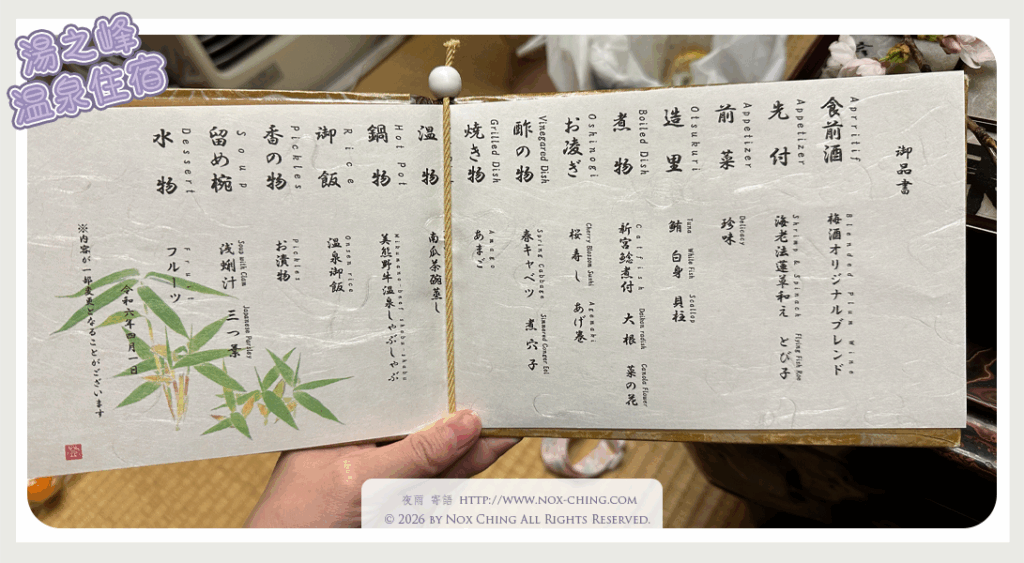 湯之峰
温泉住宿
御品書
Aprritif
食前酒
Blended Plum Wine
梅酒オリジナルブレンド
Appetizer
先付
Shrimp & Spinach Flying Fish Roe
海老法蓮草和え とびっ子
Appetizer
前菜
Delicacy
珍味
Otsukuri
造里
Tuna White Fish Scallop
鮪 白身 貝柱
Boiled Dish
煮物
Catfish Daikon radish Canola Flower
新宮鯰煮付 大根 菜の花
Oshinogi
お凌ぎ
Cherry Blossom Sushi Agemaki
桜寿し あげ巻
Vinegared Dish
酢の物
Spring Cabbage Simmered Conger Eel
春キャベツ 煮穴子
Grilled Dish
焼き物
Amago
あまご
温物
南瓜茶碗蒸し
Hot Pot
鍋物
Mikumano-beef shabu shabu
美熊野牛温泉しゃぶしゃぶ
Rice
御飯
Onsen rice
温泉御飯
Pickles
香の物
Pickles
お漬物
Soup
留め椀
Soup with Clam Japanese Parsley
浅蜊汁 三つ葉
Dessert
水物
Fruit
フルーツ
令和六年四月一日
※内容が一部変更となることがございます
夜雨 寄語 HTTP://WWW.NOX-CHING.COM
© 2026 BY NOX CHING ALL RIGHTS RESERVED.